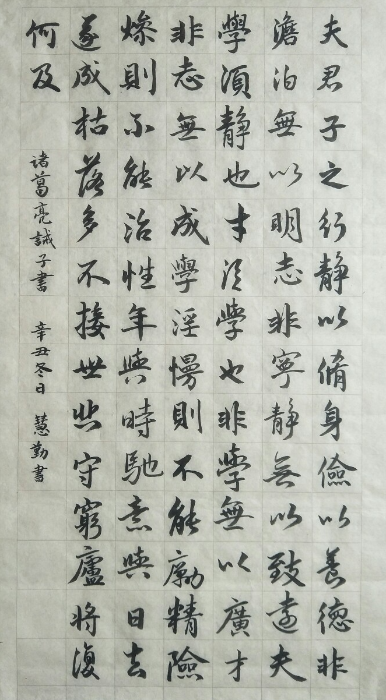 夫君子之行静以脩身儉以養德非
澹泊無以明志非寧静無以致遠夫
學須静也才須學也非學無以廣才
非志無以成學淫慢則不能勵精險
燥則不能治性年與時馳意與日去
遂成枯落多不接世悲守窮廬將復
何及
诸葛亮誡子書 辛丑冬日 慧勤書